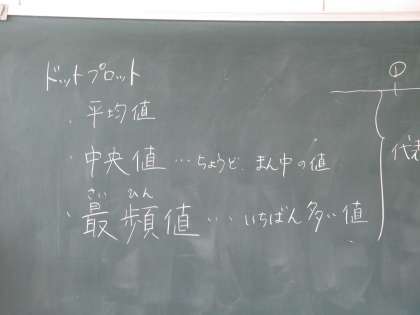 ドットプロット
・平均値
・中央値…ちょうど、まん中の値
さい ひん
・最頻値…いちばん多い値
①
代表